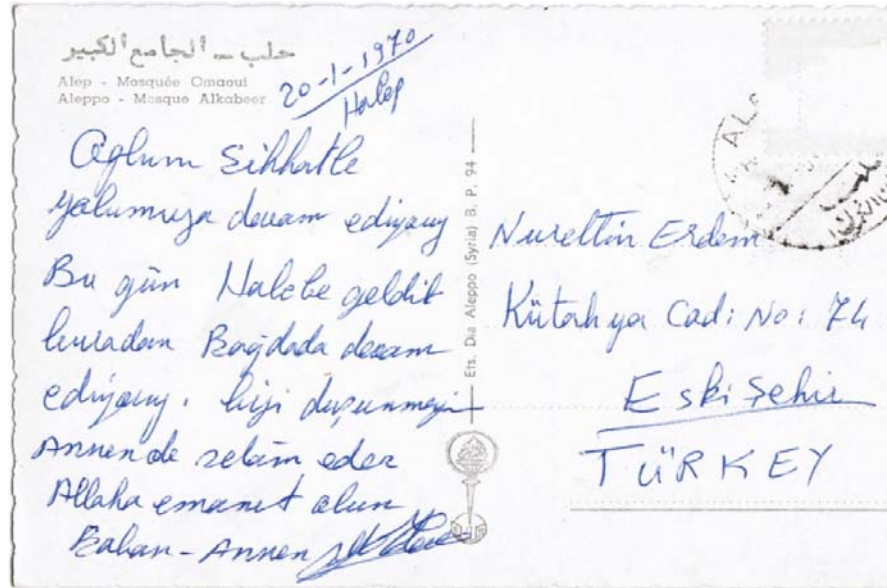 حلب ـ الجامع الكبير
Alep - Mosquée Omaoui
Aleppo - Mosque Alkabeer
20-1-1970
Halep
Oğlum Sihhatle
yolumuza devam ediyoruz
Bu gün Halebe geldik
buradan Bağdada devam
ediyoruz. bizi düşünmeyin
Annende selâm eder
Allaha emanet olun
Baban-Annen
Ets. Dia Aleppo (Syria) B. P. 94
Nurettin Erdem
Kütahya Cad: No: 74
Eskişehir
TÜRKEY